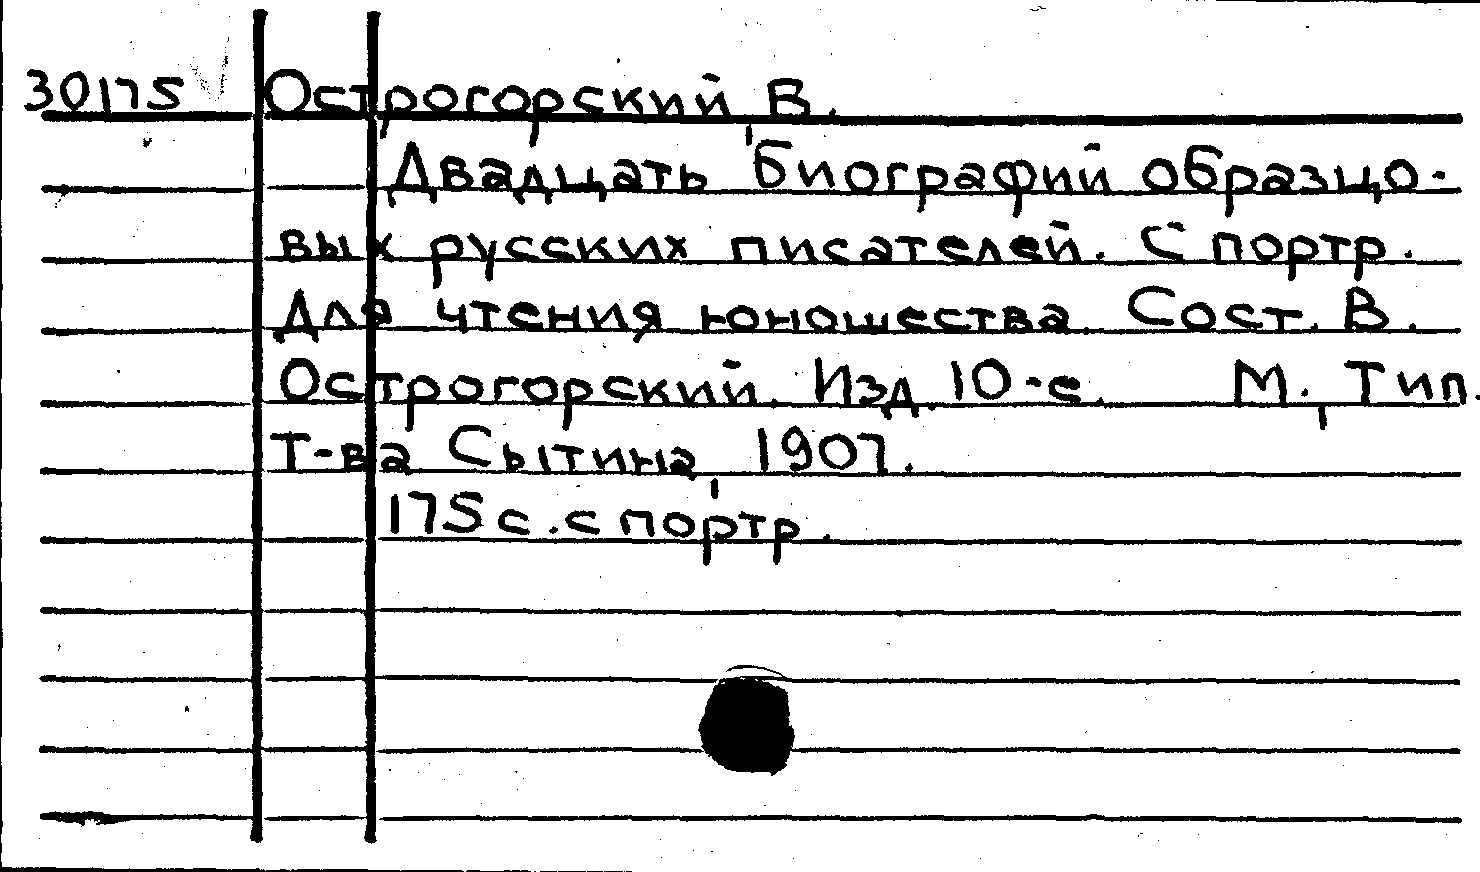 30175 Острогорский, В.
Двадцать биографий образцо-
вых русских писателей. С портр.
Для чтения юношества. Сост. В.
Острогорский. Изд. 10-е. М., Тип.
т-ва Сытина, 1907.
175 с. с портр.